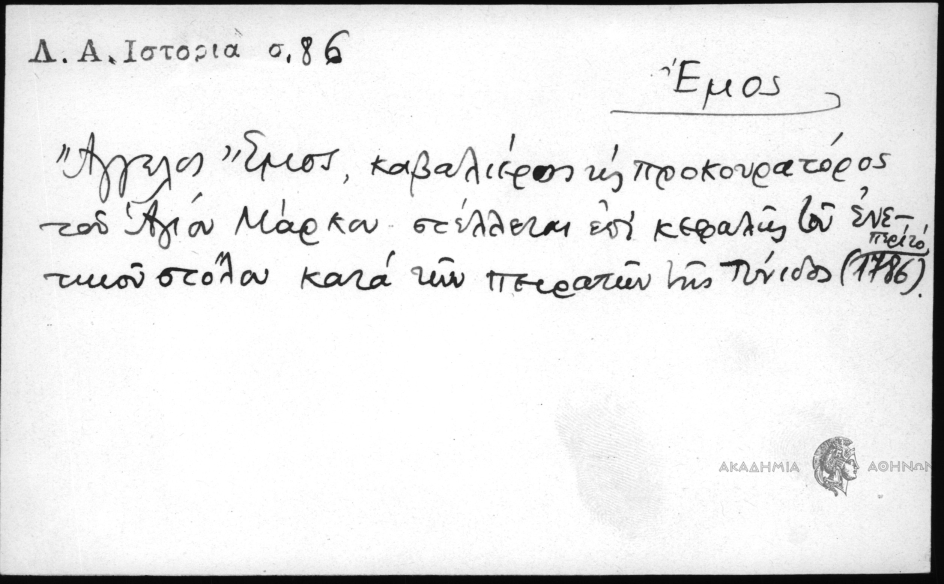 Δ. Α. Ιστορια σ. 86
Ἔμος
Ἄγγελος Ἔμος, καβαλιέρος κς προκουρατόρος
τοῦ Ἁγίου Μάρκου στέλλεται ἐπί κεφαλῆς τοῦ ἐνε-
περί τό
τικοῦ στόλου κατά τῶν πειρατῶν τῆς Τύνιδος (1786).
ΑΚΑΔΗΜΙΑ ΑΘΗΝΩΝ